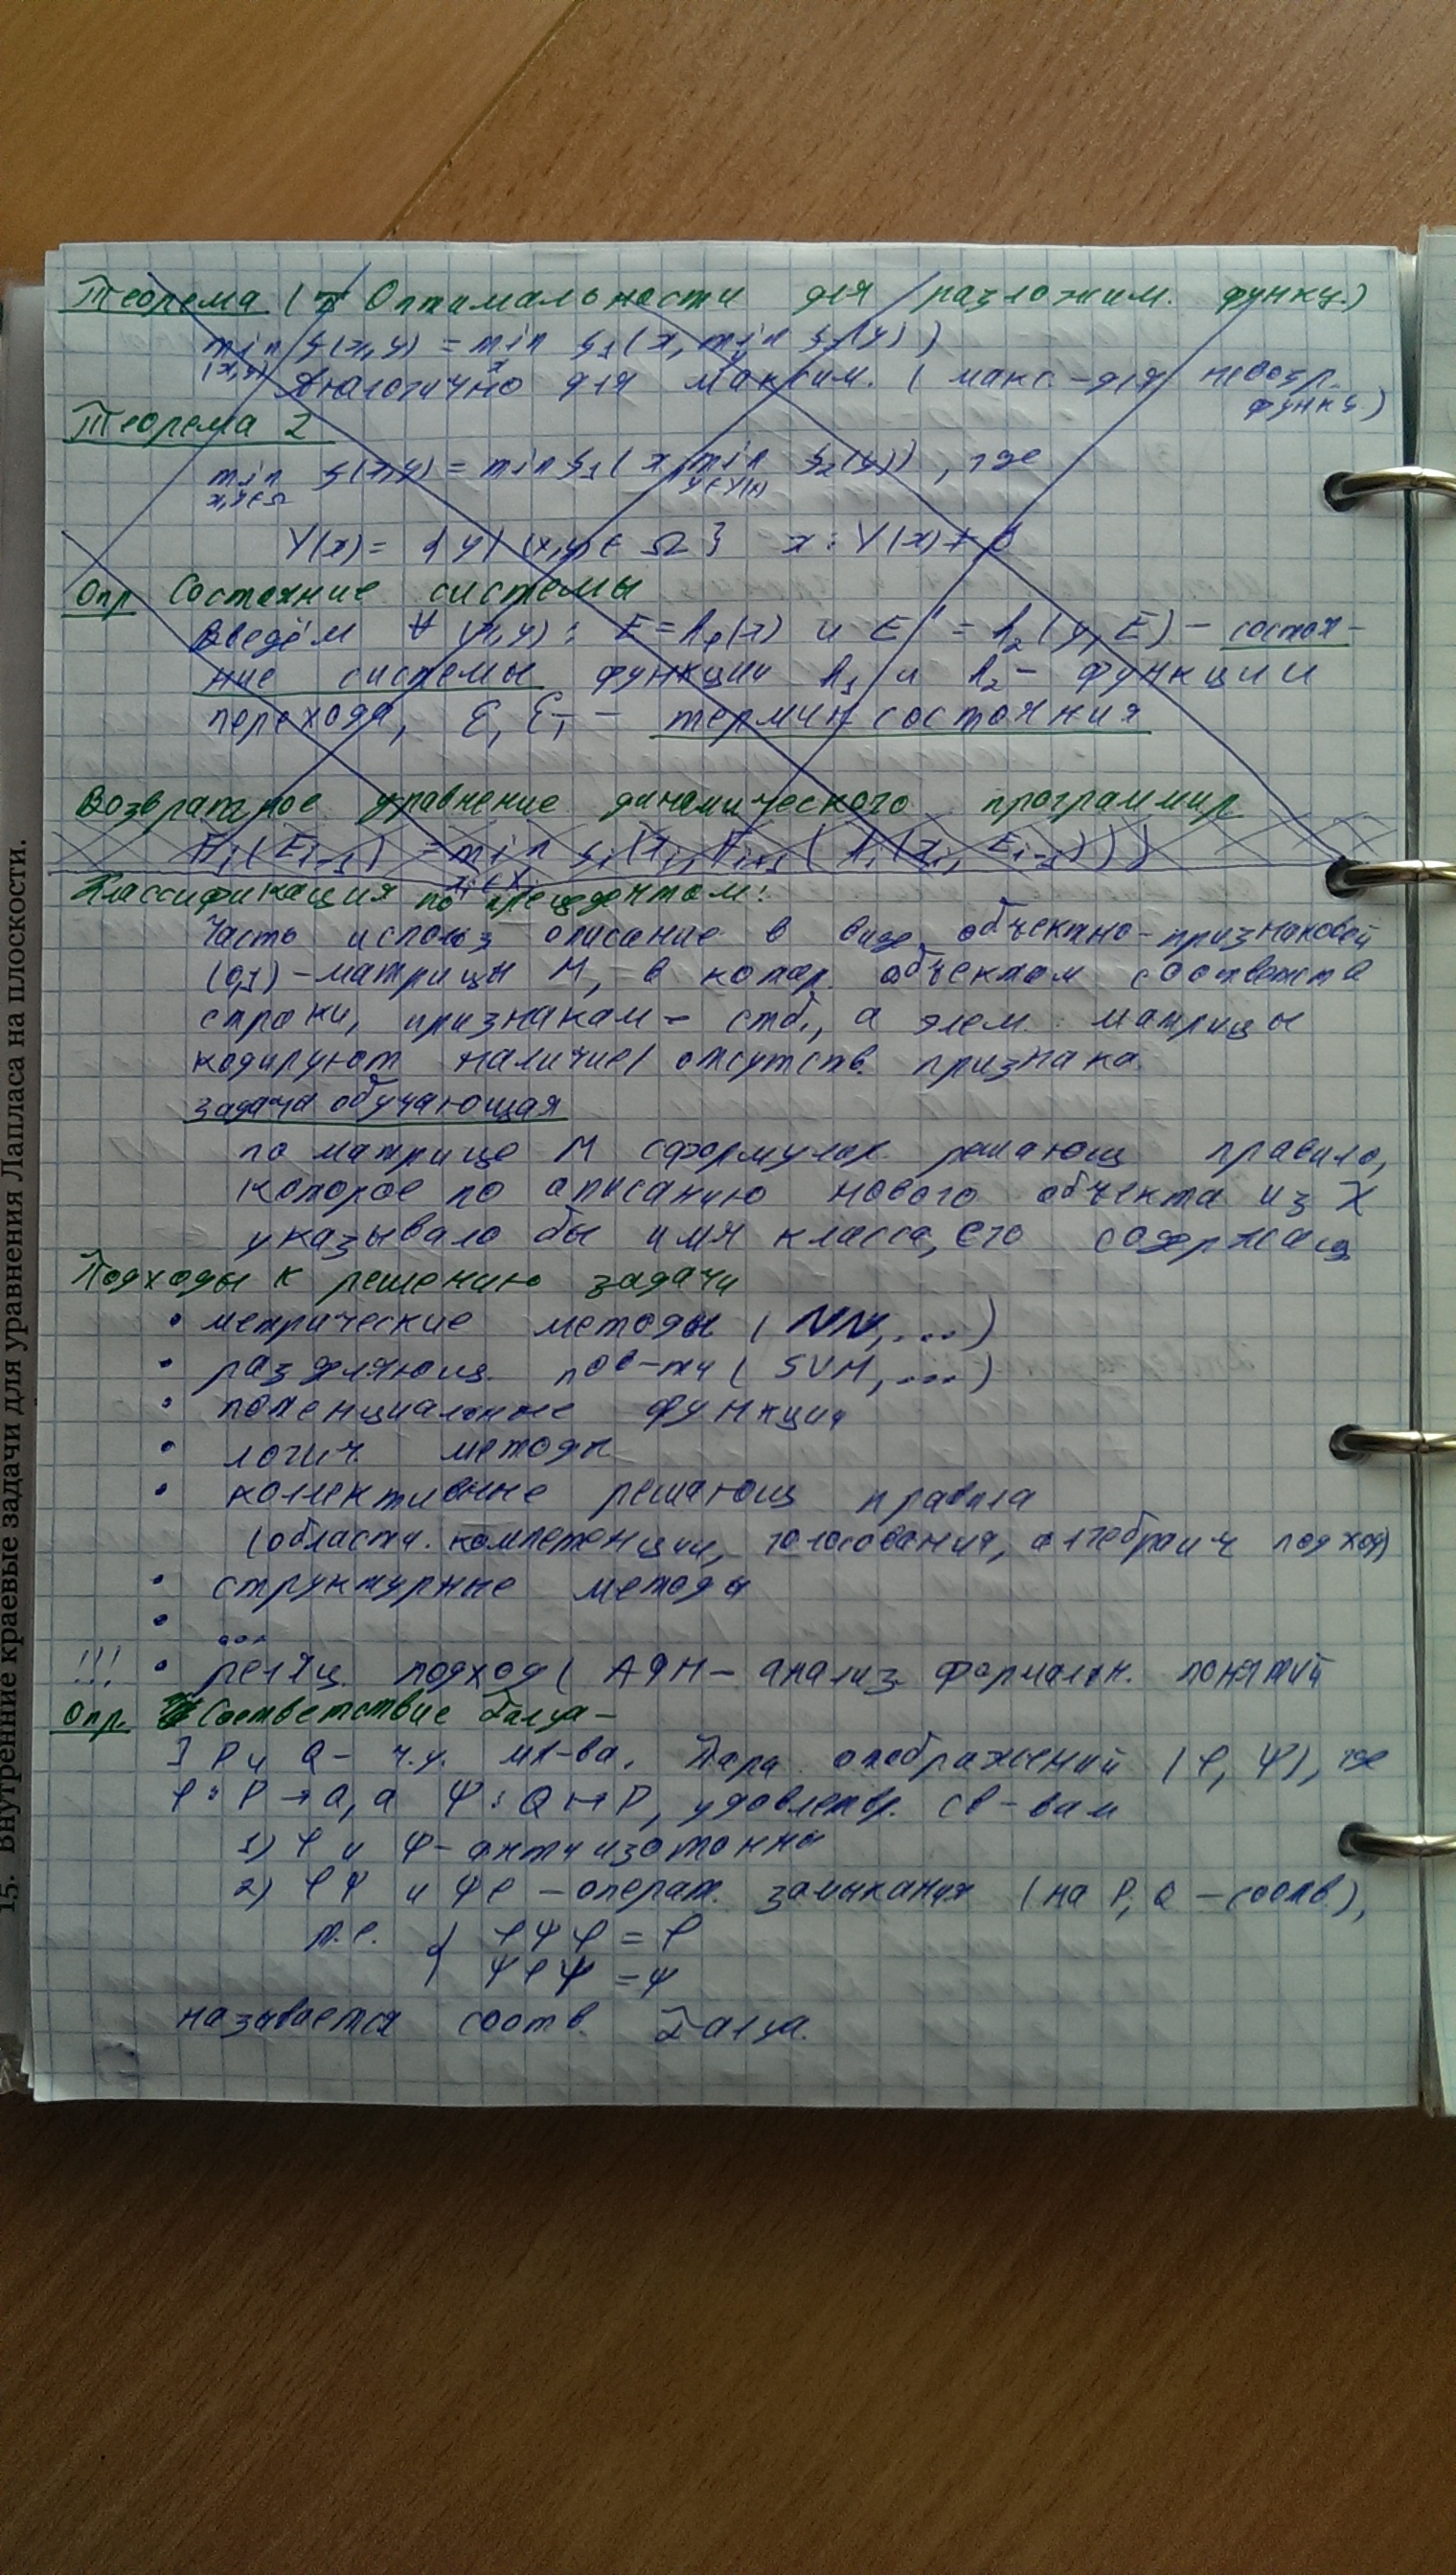 Теорема (Оптимальности для разложим. функц.)
min f(x,y) = min f₁(x, min f₂(y))
(x,y) x y
Аналогично для максим. (макс. – для невозр.
функц.)
Теорема 2
min f(x,y) = min f₁(x, min f₂(y)), где
x,y∈Ω y∈Y(x)
Y(x) = {y | (x,y) ∈ Ω} x : Y(x) ≠ ∅
Опр Состояние системы
Введём ∀ (x,y): E = h₁(x) и E' = h₂(y, E) – состоя-
ние системы функции h₁ и h₂ – функции
перехода, термин состояния
Возвратное уравнение динамического программир
Fᵢ(Eᵢ₋₁) = min fᵢ(xᵢ, Fᵢ₊₁(hᵢ(xᵢ, Eᵢ₋₁)))
xᵢ∈Xᵢ
Классификация по прецедентам:
Часть использ описание в виде объектно-признаковой
(0,1)-матрицы M, в котор. объектам соответств
строки, признакам – стб., а элем. матрицы
кодируют наличие/отсутств. признака.
Задача обучающая
по матрице M сформулир. решающ правило,
которое по описанию нового объекта из X
указывало бы имя класса, его содержащ
Подходы к решению задачи
• метрические методы (NN, ...)
• разделяющ. пов-ти (SVM, ...)
• потенциальные функции
• логич. методы
• коллективные решающ правила
(области компетенции, голосования, алгебраич подход)
• структурные методы
• ...
!!! • реляц. подход (АФП – анализ формальн. понятий
Опр. Соответствие Галуа –
] P и Q – ч.у. мн-ва. Пара отображений (φ, ψ), где
φ : P → Q, а ψ : Q → P, удовлетвр. св-вам
1) φ и ψ – антиизотонны
2) φψ и ψφ – операт. замыкания (на P, Q – соотв.),
т.е. { φψφ = φ
ψφψ = ψ
называется соотв. Галуа.
15. Внутренние краевые задачи для уравнения Лапласа на плоскости.